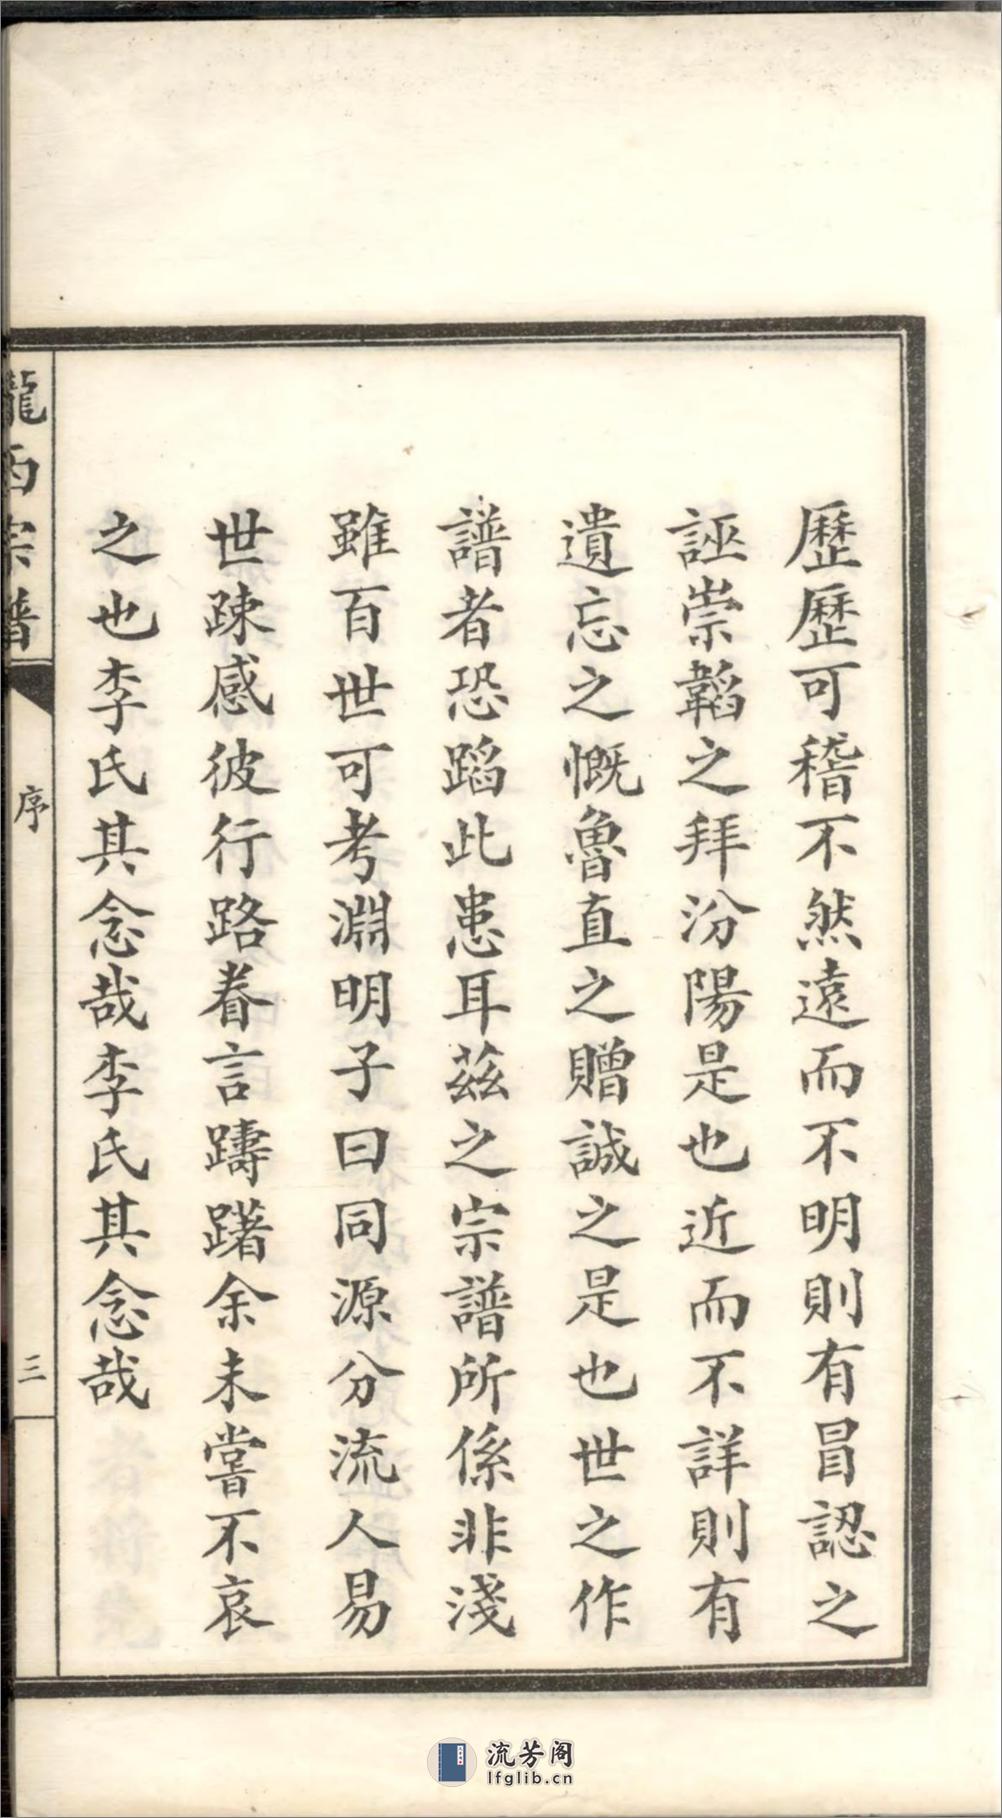 歷歷可稽不然遠而不明則有冒認之
誣崇韜之拜汾陽是也近而不詳則有
遺忘之慨魯直之贈誠之是也世之作
譜者恐蹈此患耳茲之宗譜所係非淺
雖百世可考淵明子曰同源分流人易
世踈感彼行路眷言躊躇余未嘗不哀
之也李氏其念哉李氏其念哉
隴西宗譜
序
三
流芳阁
lfglib.cn